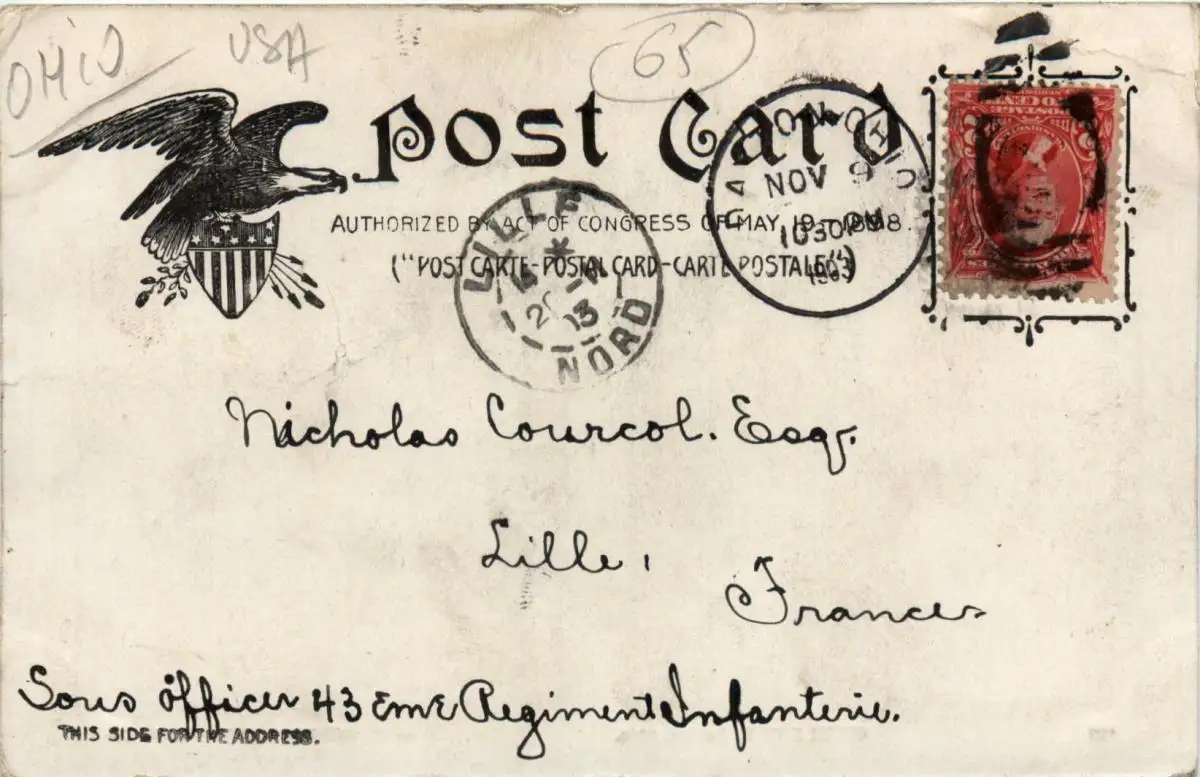 OHIO USA 65
Post Card
AUTHORIZED BY ACT OF CONGRESS OF MAY 19, 1898.
("POST CARTE-POSTAL CARD-CARTE POSTALE")
CANTON, OHIO
NOV 9
1030 PM
1903
LILLE
20 03
NORD
Nicholas Courcol. Esq.
Lille,
France
Sous officer 43 Eme Regiment Infanterie.
THIS SIDE FOR THE ADDRESS.